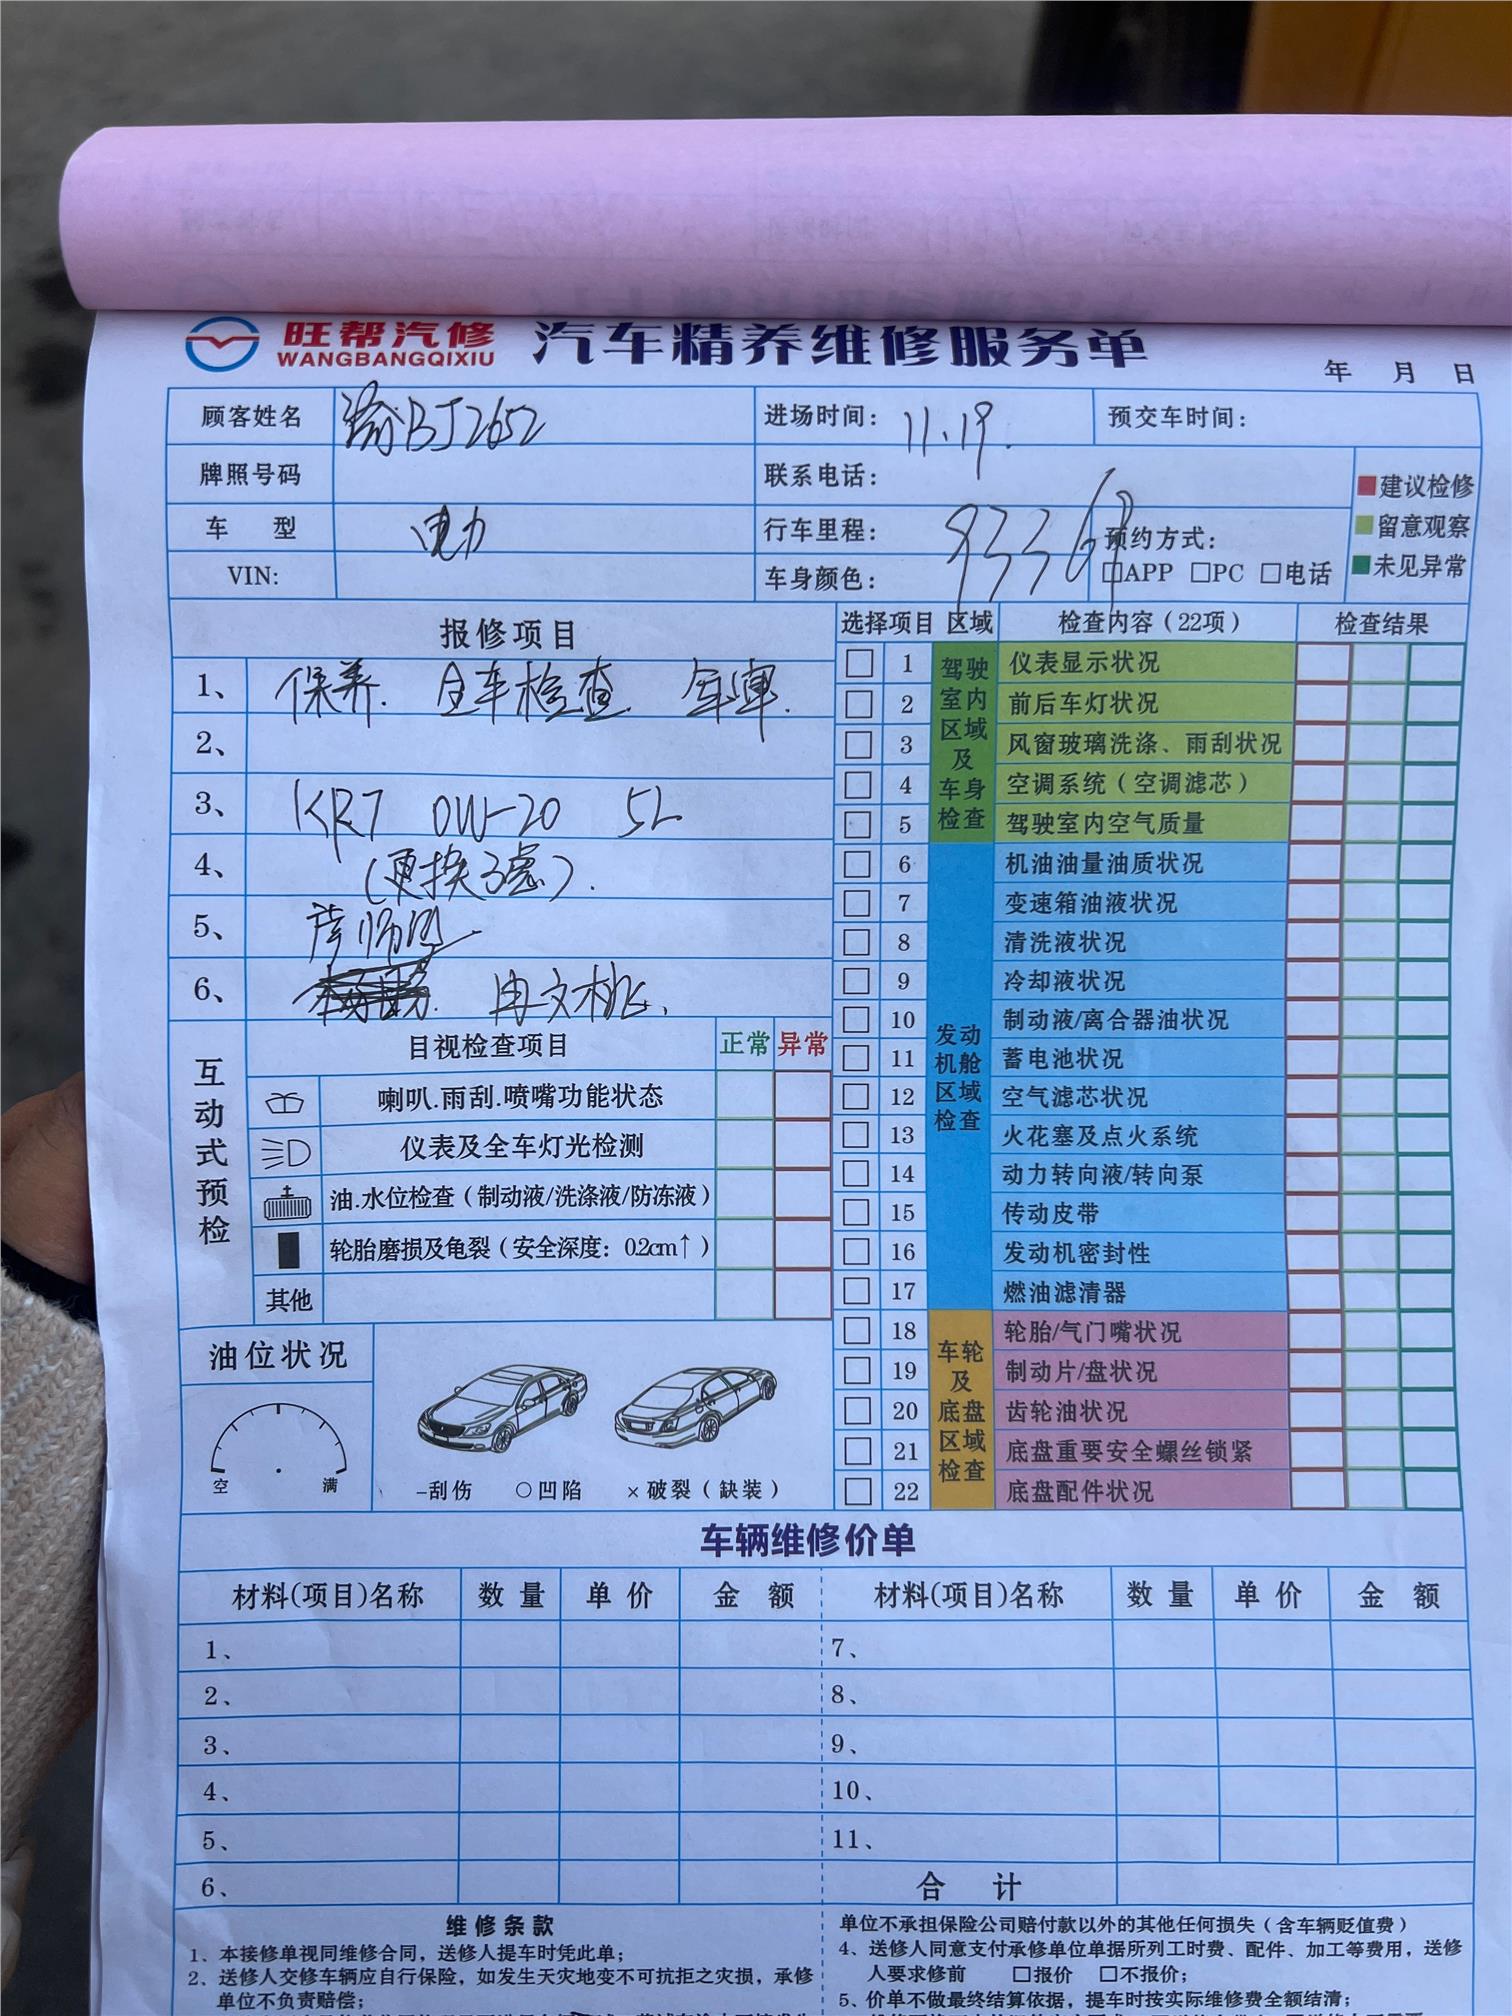 旺帮汽修 汽车精养维修服务单
WANGBANGQIXIU
年 月 日
顾客姓名 渝BJ2652 进场时间: 11.19. 预交车时间:
牌照号码 联系电话:
车 型 电力 行车里程: 93368 预约方式:
VIN: 车身颜色: □APP □PC □电话
建议检修
留意观察
未见异常
报修项目
1、 保养. 全车检查 年审.
2、
3、 KR7 0W-20 5L
4、 (更换3滤).
5、
6、
互动式预检
目视检查项目 正常 异常
喇叭.雨刮.喷嘴功能状态
仪表及全车灯光检测
油.水位检查(制动液/洗涤液/防冻液)
轮胎磨损及龟裂(安全深度: 0.2cm↑)
其他
油位状况
空 满
-刮伤 ○凹陷 ×破裂(缺装)
选择项目 区域 检查内容(22项) 检查结果
驾驶室内区域及车身检查
1 仪表显示状况
2 前后车灯状况
3 风窗玻璃洗涤、雨刮状况
4 空调系统(空调滤芯)
5 驾驶室内空气质量
发动机舱区域检查
6 机油油量油质状况
7 变速箱油液状况
8 清洗液状况
9 冷却液状况
10 制动液/离合器油状况
11 蓄电池状况
12 空气滤芯状况
13 火花塞及点火系统
14 动力转向液/转向泵
15 传动皮带
16 发动机密封性
17 燃油滤清器
车轮及底盘区域检查
18 轮胎/气门嘴状况
19 制动片/盘状况
20 齿轮油状况
21 底盘重要安全螺丝锁紧
22 底盘配件状况
车辆维修价单
材料(项目)名称 数量 单价 金额 材料(项目)名称 数量 单价 金额
1、 7、
2、 8、
3、 9、
4、 10、
5、 11、
6、 合计
维修条款
1、本接修单视同维修合同，送修人提车时凭此单；
2、送修人交修车辆应自行保险，如发生天灾地变不可抗拒之灾损，承修
单位不负责赔偿；
单位不承担保险公司赔付款以外的其他任何损失(含车辆贬值费)
4、送修人同意支付承修单位单据所列工时费、配件、加工等费用，送修
人要求修前 □报价 □不报价；
5、价单不做最终结算依据，提车时按实际维修费全额结清；